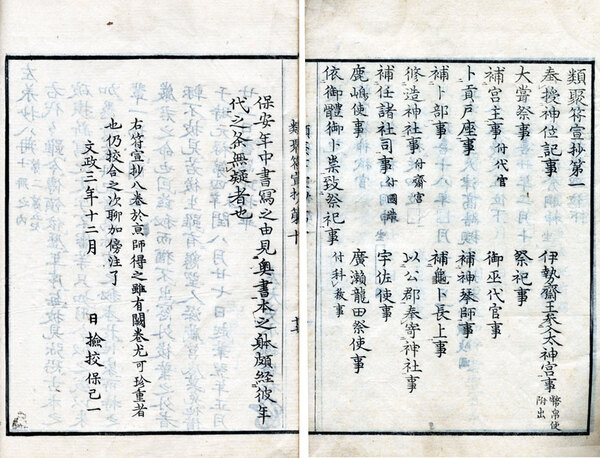 類聚符宣抄第一
奉授神位記事 伊勢齋王參太神宮事 幣帛使附出
大嘗祭事 祭祀事
補宮主事 付代官 御巫代官事
卜貢戸座事 補神琴師事
補卜部事 補龜卜長上事
修造神社事 付齋宮 以公郡奉寄神社事
補任諸社司事 付國 宇佐使事
鹿嶋使事 廣瀬龍田祭使事
依御體御卜祟致祭祀事 付科祓事
類聚符宣抄第十
保安年中書寫之由見奥書本之躰頗經彼年
代之条無疑者也
右符宣抄八巻於京師得之雖有闕巻尤可珍重者
也仍挍合之次聊加傍注了
文政三年十二月 日 檢挍保己一